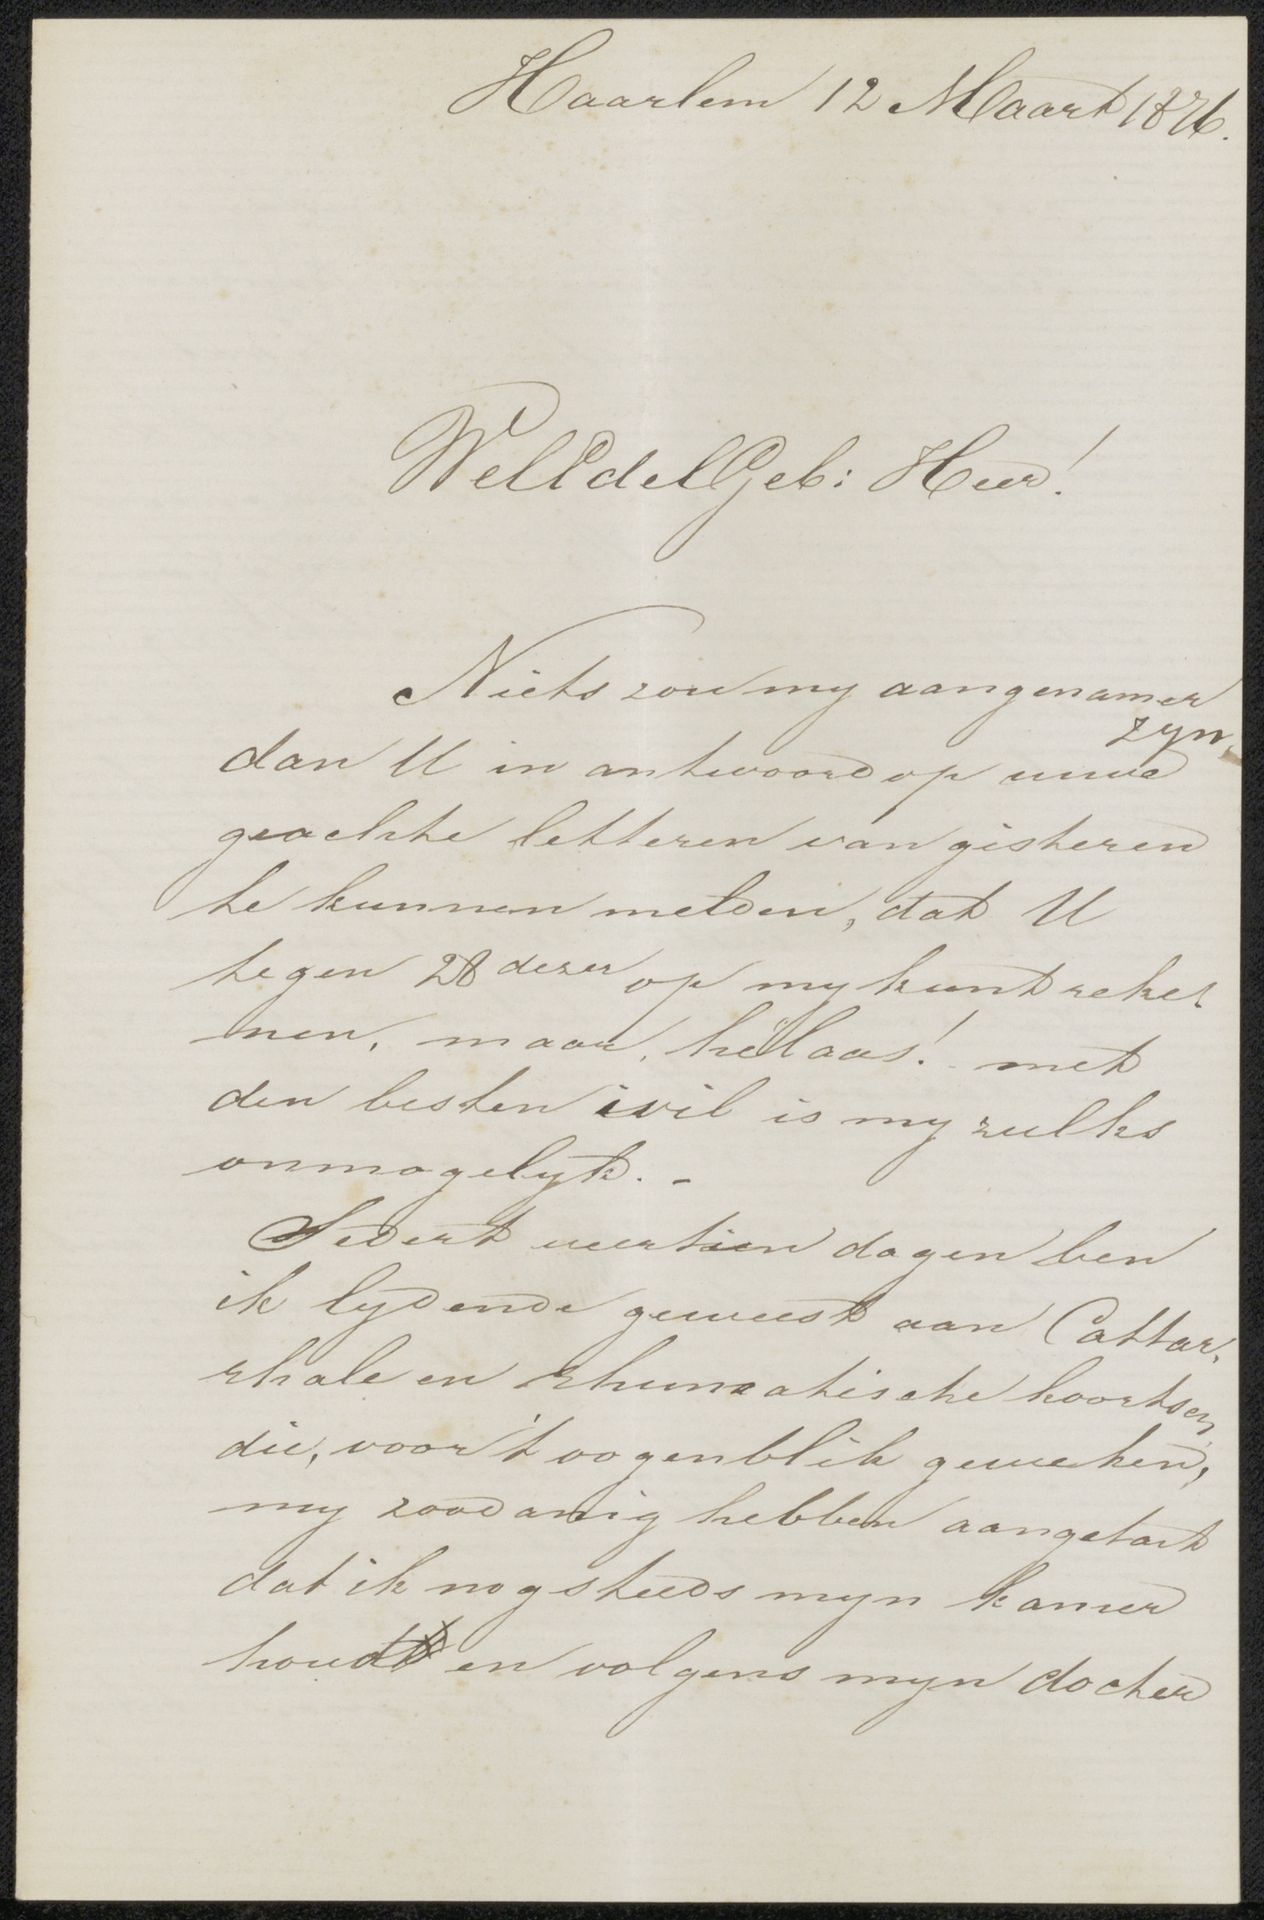 Haarlem 12 Maart 1876.
WelEdelGeb: Heer!
Niets zou my aangenamer
zyn,
dan U in antwoord op uwe
geachte letteren van gisteren
te kunnen melden, dat U
tegen 28 dezer op my kunt reke-
nen, maar, helaas! met
den besten wil is my zulks
onmogelyk. -
Sedert veertien dagen ben
ik lydende geweest aan Cattar-
rhale en rhumatische koortsen
die, voor 't oogenblik geweken,
my zoodanig hebben aangetast
dat ik nog steeds myn kamer
houd en volgens myn docter